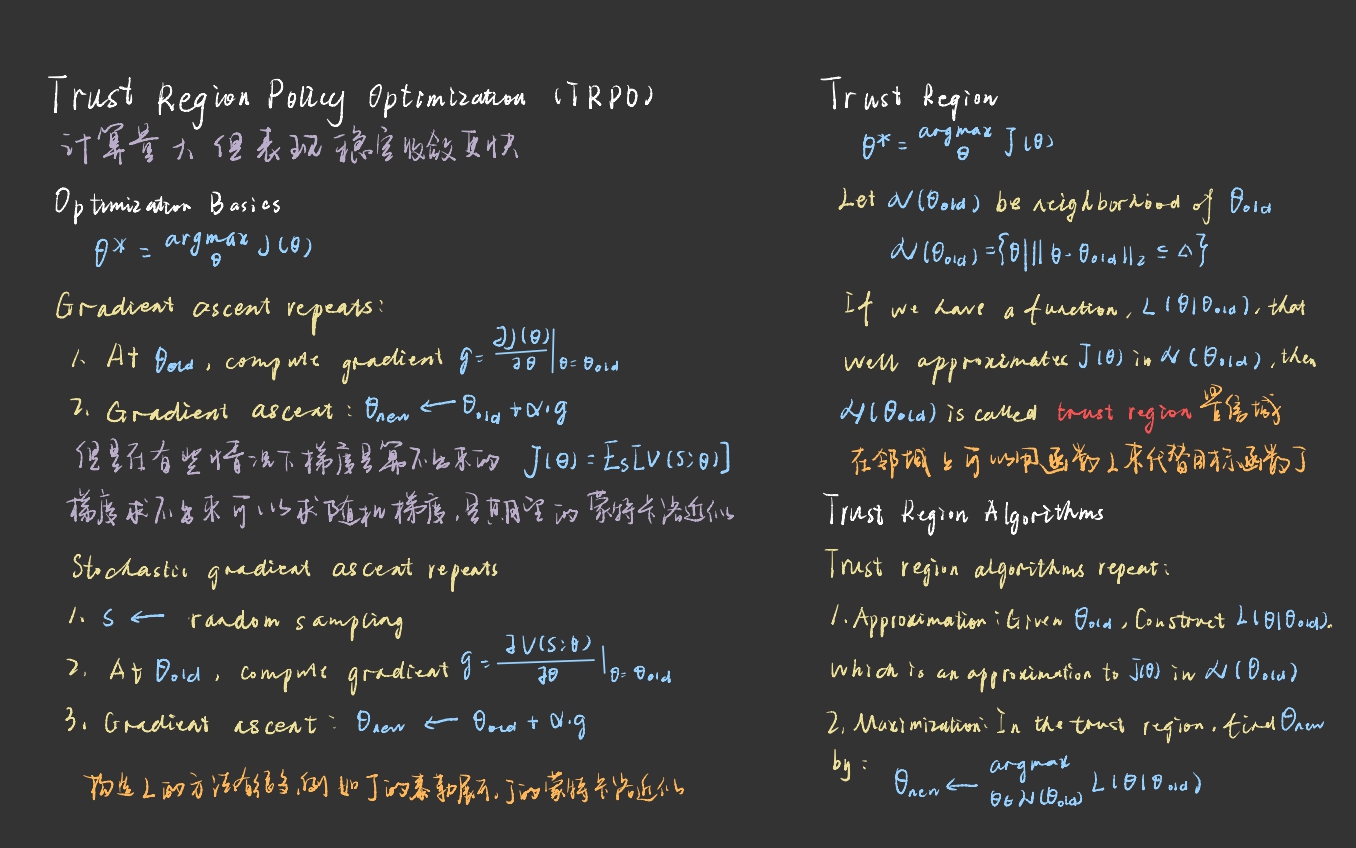 Trust Region Policy Optimization (TRPO)
计算量大 但表现稳定收敛更快
Optimization Basics
θ* = argmax_θ J(θ)
Gradient ascent repeats:
1. At θold, compute gradient g = ∂J(θ)/∂θ |θ=θold
2. Gradient ascent: θnew ← θold + α·g
但是在有些情况下梯度是算不出来的 J(θ) = Es[V(S;θ)]
梯度求不出来可以求随机梯度,是期望的蒙特卡洛近似
Stochastic gradient ascent repeats
1. s ← random sampling
2. At θold, compute gradient g = ∂V(s;θ)/∂θ |θ=θold
3. Gradient ascent: θnew ← θold + α·g
构造L的方法有很多,例如J的泰勒展开,J的蒙特卡洛近似
Trust Region
θ* = argmax_θ J(θ)
Let N(θold) be neighborhood of θold
N(θold) = {θ| ||θ-θold||₂ ≤ Δ}
If we have a function, L(θ|θold), that
well approximates J(θ) in N(θold), then
N(θold) is called trust region 置信域
在邻域上可以用函数L来代替目标函数了
Trust Region Algorithms
Trust region algorithms repeat:
1. Approximation: Given θold, Construct L(θ|θold).
Which is an approximation to J(θ) in N(θold)
2. Maximization: In the trust region, find θnew
by: θnew ← argmax_θ∈N(θold) L(θ|θold)